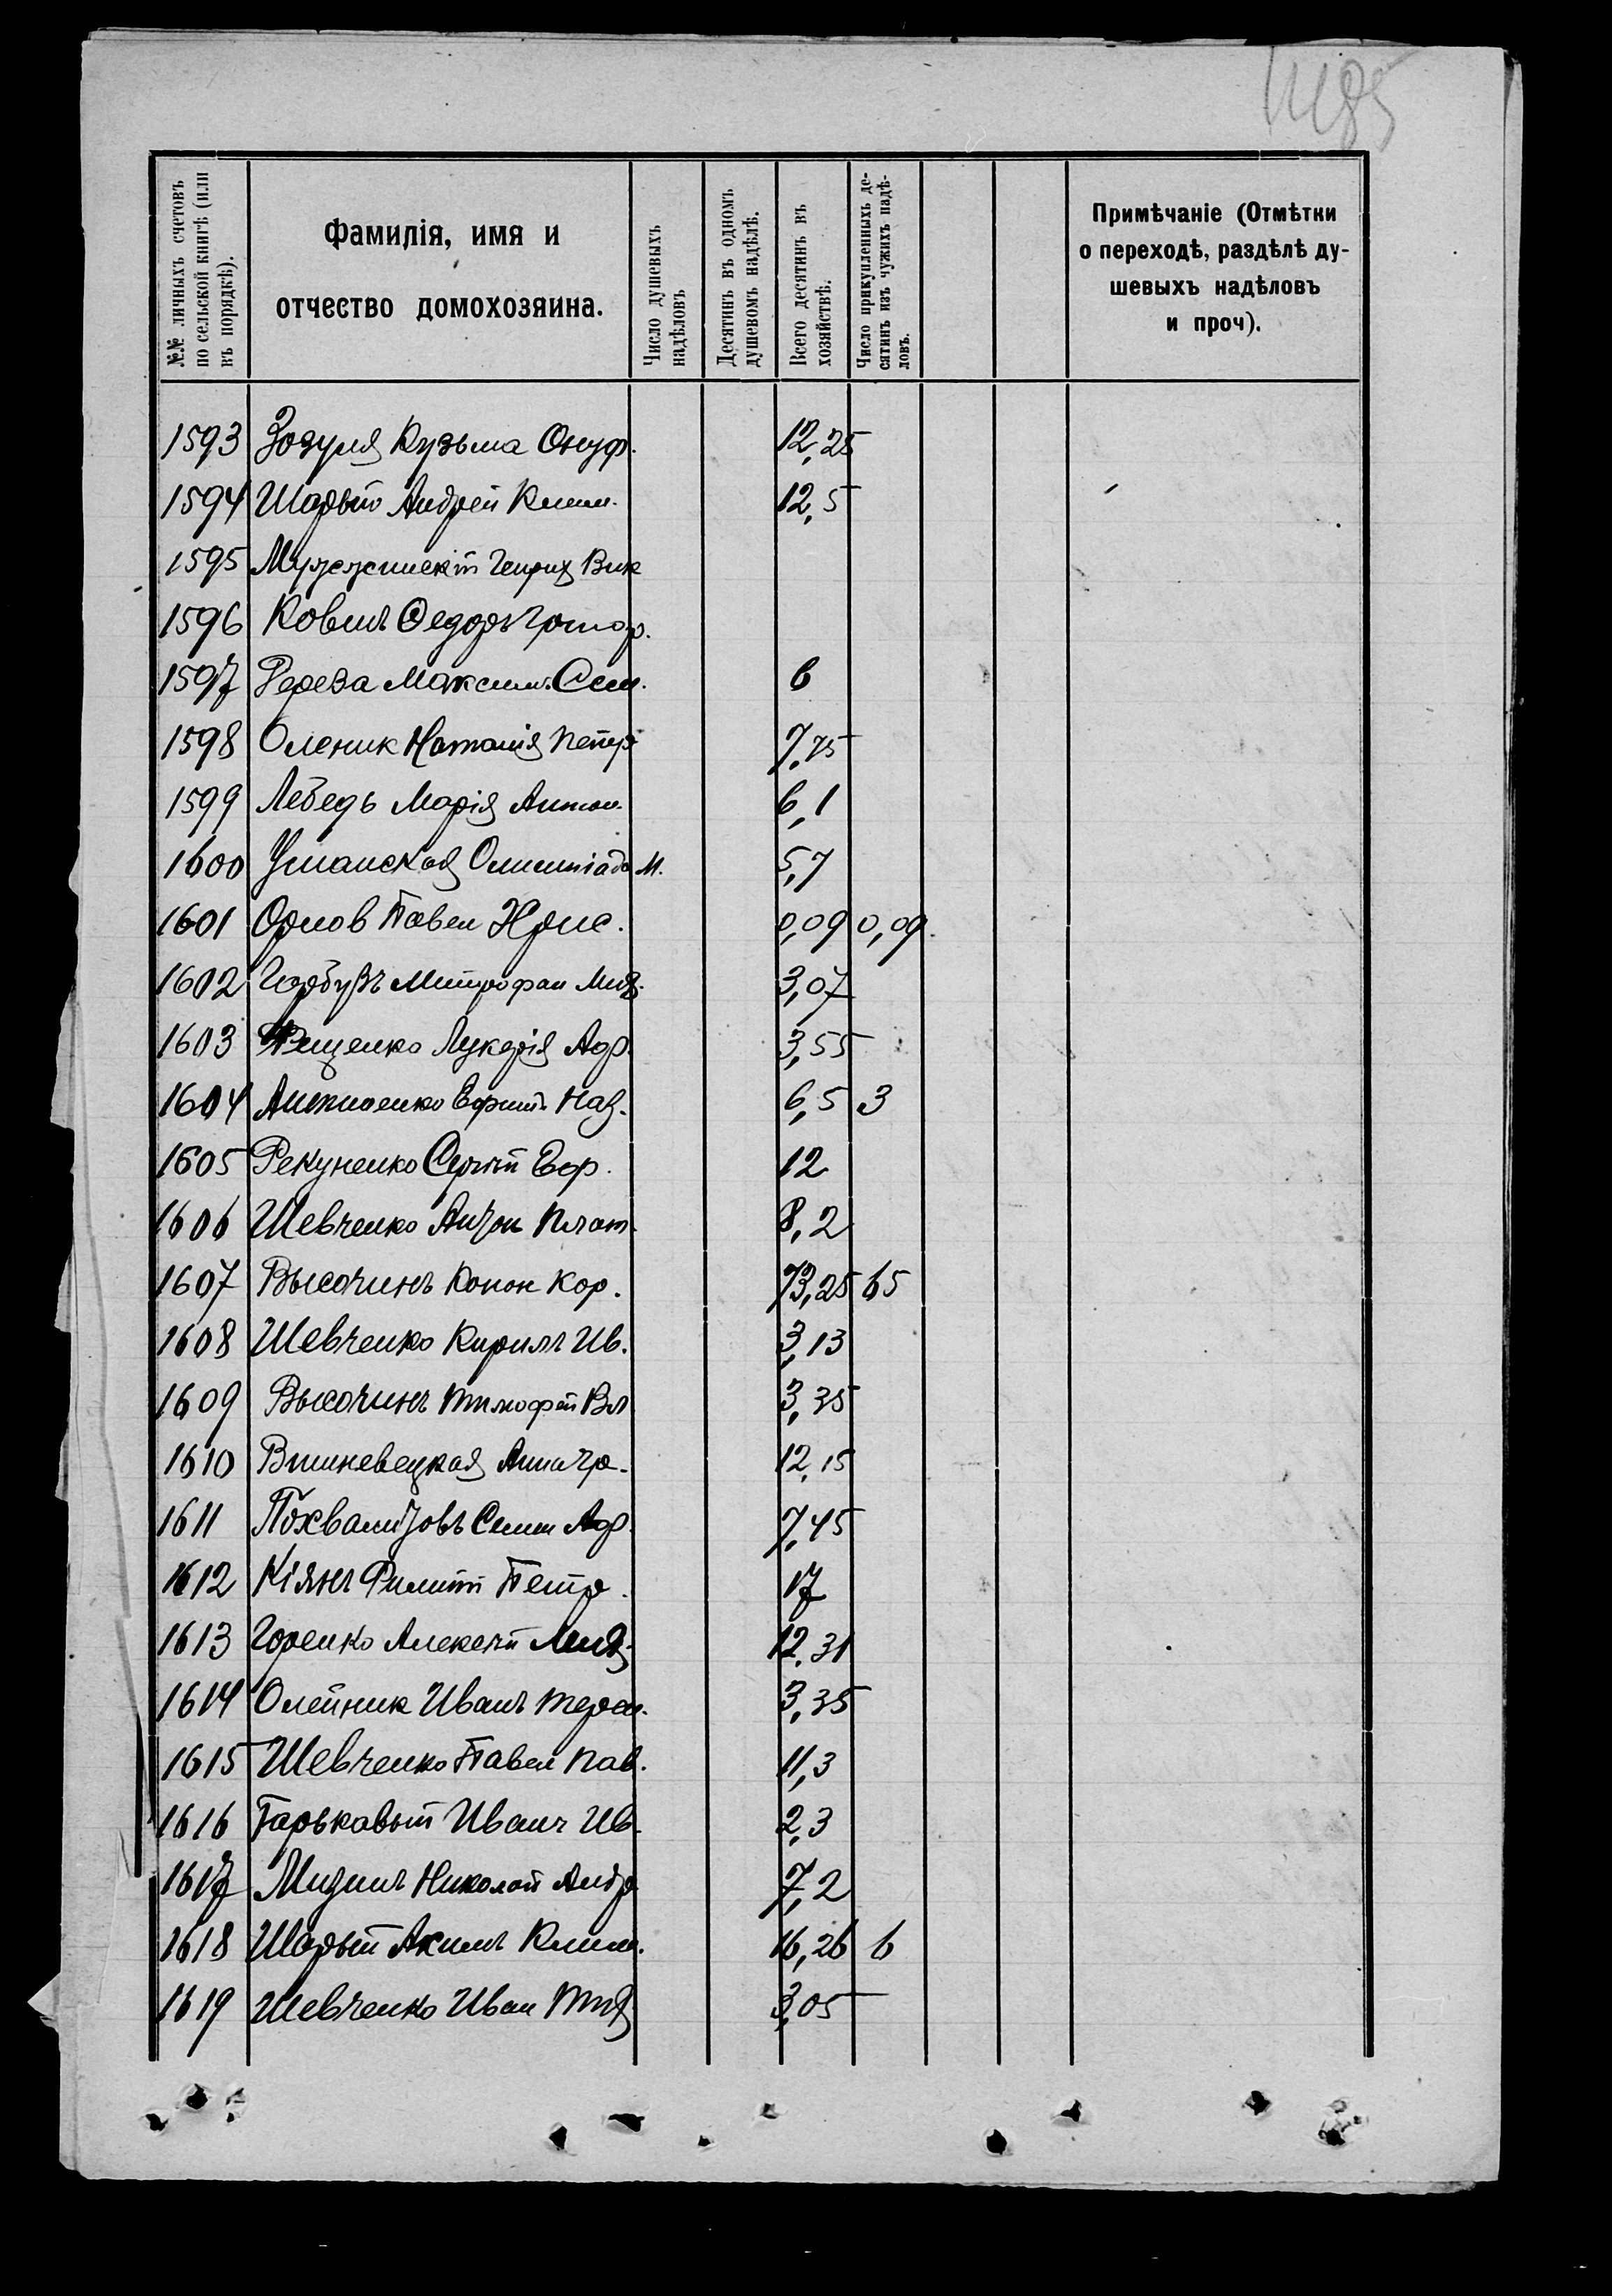 №№ личныхъ счетовъ по сельской книгѣ (или въ порядкѣ).
Фамилія, имя и отчество домохозяина.
Число душевыхъ надѣловъ
Десятинъ въ одномъ душевомъ надѣлѣ.
Всего десятинъ въ хозяйствѣ.
Число прикупленныхъ десятинъ изъ чужихъ надѣловъ.
Примѣчаніе (Отмѣтки
о переходѣ, раздѣлѣ ду-
шевыхъ надѣловъ
и проч).
1593 Зозуля Кузьма Онуф. 12,25
1594 Шарый Андрей Клим. 12,5
1595 Генрих Вик
1596 Федоръ Григор.
1597 Максим. Сем. 6
1598 Оленик Наталія Петр 7,75
1599 Лебедь Марія Антон. 6,1
1600 Уманская Олимпіада М. 5,7
1601 Орлов Павел 0,09 0,09.
1602 Гарбузъ Митрофан Мих. 3,07
1603 Лукерія 3,55
1604 Ефимъ Наз. 6,5 3
1605 Рекуненко Сергій 12
1606 Шевченко Антон Плат. 8,2
1607 Высочинъ Конон Кор. 73,25 65
1608 Шевченко Кирилъ Ив. 3,13
1609 Высочинъ Тимофей Вл 3,35
1610 Вишневецкая Анна Гр. 12,15
1611 Похвалитовъ Семен 7,45
1612 Кіянъ Филипп Петр. 17
1613 Горенко Алексѣй Мих. 12,31
1614 Олейник Иванъ Терен. 3,35
1615 Шевченко Павел Пав. 11,3
1616 Гарькавый Иванъ Ив. 2,3
1617 Мизинъ Николай Андр 7,2
1618 Шарый Акимъ Клим. 16,26 6
1619 Шевченко Иван 3,05